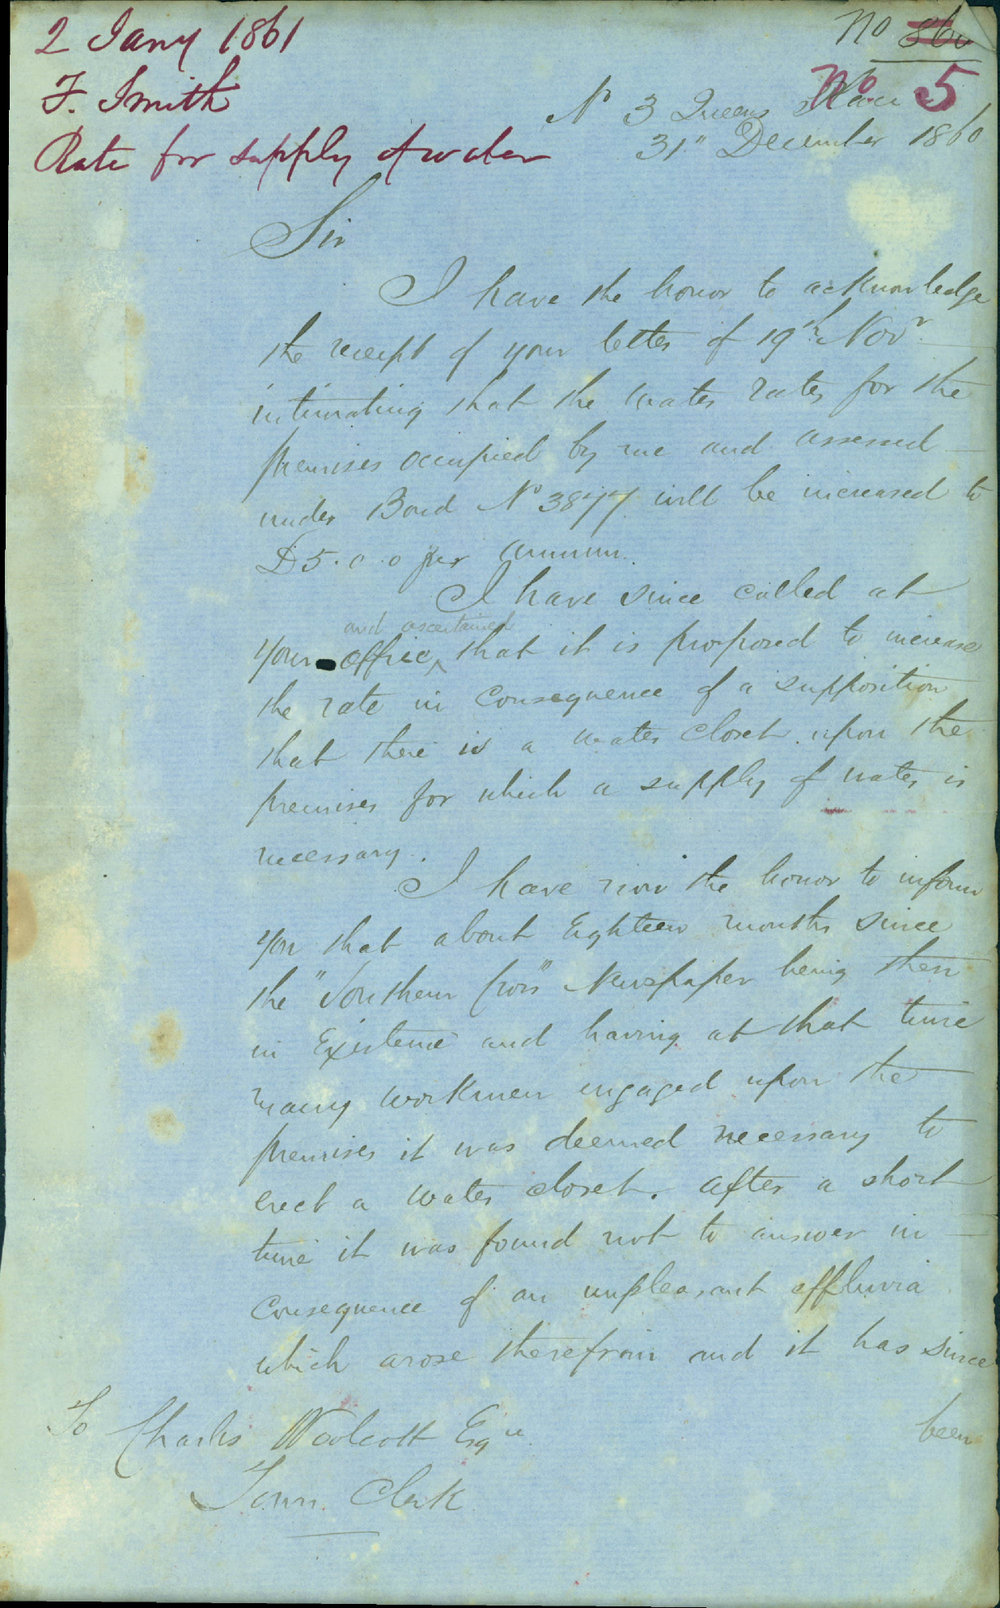 2 Jany 1861
F. Smith
Rate for supply of water
No 860
No. 5
No 3 Queens Place
31" December 1860
Sir
I have the honor to acknowledge
the receipt of your letter of 19th Novr
intimating that the water rates for the
premises occupied by me and assessed
under Bond No 3877 will be increased to
£5.0.0 per annum.
I have since called at
and ascertained
your office, that it is proposed to increase
the rate in consequence of a supposition
that there is a water closet upon the
premises for which a supply of water is
necessary.
I have now the honor to inform
you that about Eighteen months since
the "Southern Cross" Newspaper being then
in Existence and having at that time
many workmen engaged upon the
premises it was deemed necessary to
erect a water closet. After a short
time it was found not to answer in
consequence of an unpleasant effluvia
which arose therefrom and it has since
been
To Charles Woolcott Esqre
Town Clerk